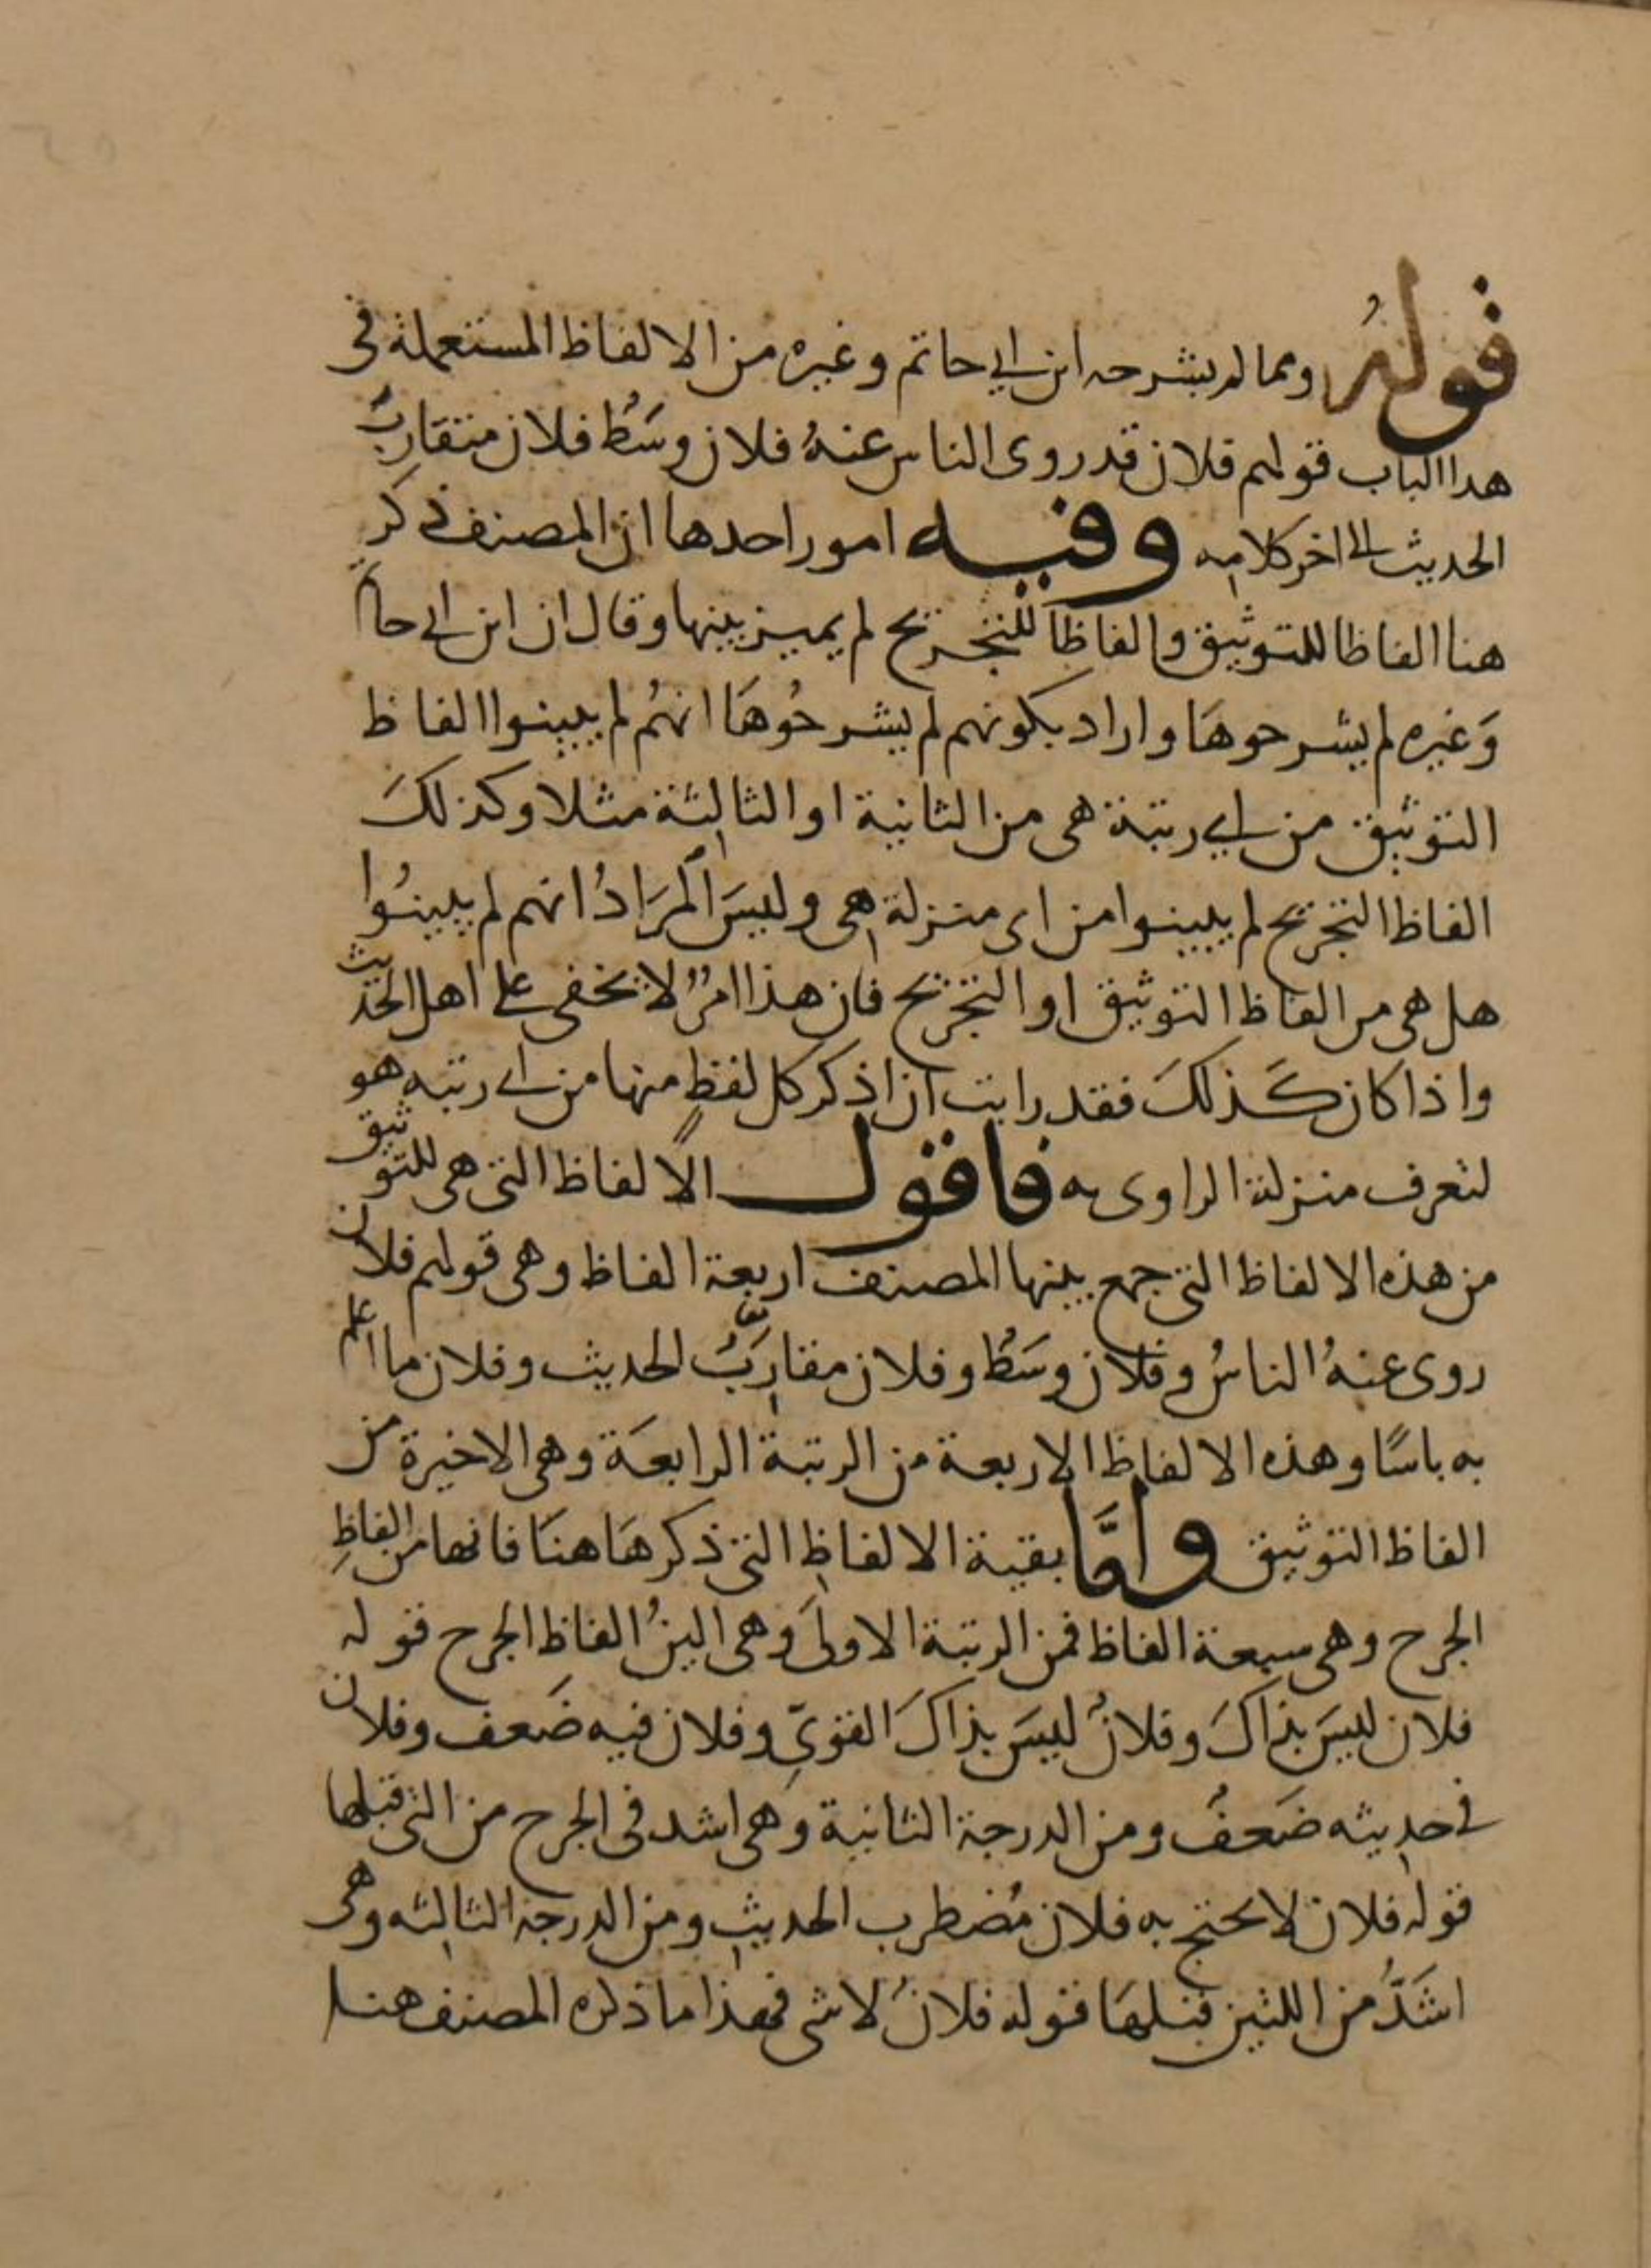 قوله ومما لم يشرحه ابن ابي حاتم وغيره من الالفاظ المستعملة في
هذا الباب قولهم فلان قد روى الناس عنهُ فلان وسَطُ فلان متقاربُ
الحديث الى اخر كلامه وفيه امور احدها ان المصنف ذكر
هنا الفاظا للتوثيق والفاظاً للتجريح لم يميز بينها وقال ان ابن ابي حاتم
وَغيره لم يشرحوهَا واراد بكونهم لم يشرحُوهَا انهُم لم يبينوا الفاظ
التوثيق من اي رتبة هي من الثانية او الثالثة مثلا وكذلكَ
الفاظ التجريح لم يبينوا من اى منزلة هي وليسَ المرَادُ انهم لم يبينُوا
هل هي من الفاظ التوثيق او التجريح فان هذا امرٌ لا يخفى على اهل الحديث
واذا كان كَذلكَ فقد رايت ان اذكر كل لفظٍ منها من اي رتبه هو
لتعرف منزلة الراوى به فاقول الالفاظ التي هي للتوثيق
من هذه الالفاظ التي جمع بينها المصنف اربعة الفاظ وهي قولهم فلان
روى عنهُ الناسُ وفلان وسَطُ وفلان مقاربُ الحديث وفلان ما اعلم
به باسًا وهذه الالفاظ الاربعة من الرتبة الرابعَة وهي الاخيرة من
الفاظ التوثيق وامَّا بقية الالفاظ التي ذكرهَا هنَا فانها من الفاظِ
الجرح وهي سبعة الفاظ فمن الرتبة الاولىَ وَهي الينُ الفاظ الجرح قوله
فلان ليسَ بذاكَ وفلانُ ليسَ بذاكَ القوىّ وفلان فيه ضَعف وفلان
في حديثه ضَعفُ ومن الدرجة الثانية وَهي اشد في الجرح من التي قبلها
قوله فلان لا يحتج به فلان مُضطرب الحديث ومن الدرجة الثالثه وهي
اشَدُّ من اللتين قبلهَا قوله فلانُ لا شي فهذا ما ذكره المصنف هنا